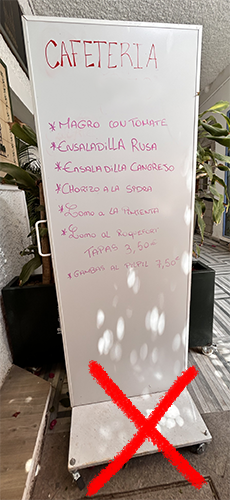 CAFETERIA
*MAGRO CON TOMATE
*ENSALADILLA RUSA
*ENSALADILLA CANGREJO
*CHORIZO A LA SIDRA
*Lomo A LA PIMIENTA
*Lomo al Roquefort
TAPAS 3,50€
*GAMBAS AL PILPIL 7,50€